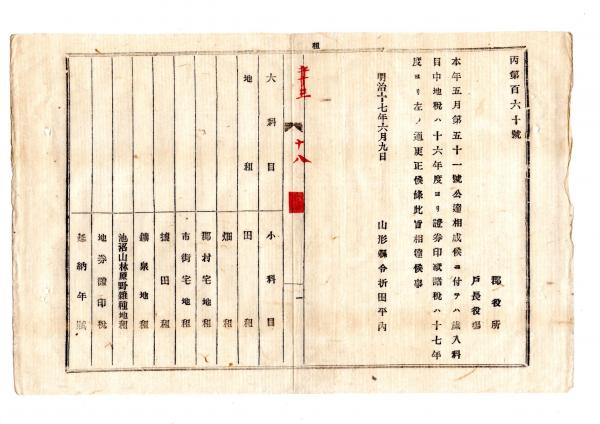 租
丙第百六十號
郡役所
戸長役場
本年五月第五十一號公達相成候ニ付テハ歳入科
目中地税ハ十六年度ヨリ證券印税諸税ハ十七年
度ヨリ左ノ通更正候條此旨相達候事
明治十七年六月九日
山形縣令折田平内
十八
大科目
小科目
地租
田租
畑租
郡村宅地租
市街宅地租
鹽田租
鑛泉地租
池沼山林原野雜種地租
地券證印税
延納年賦